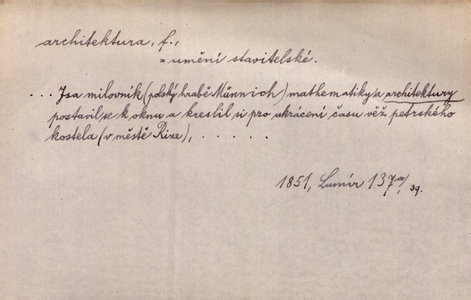 architektura, f.,
= umění stavitelské.
... Jsa milovník (polský hrabě Münnich) mathematiky a architektury
postavil se k oknu a kreslil si pro ukrácení času věž petrského
kostela (v městě Rize), . . . . .
1851, Lumír 137a/39.